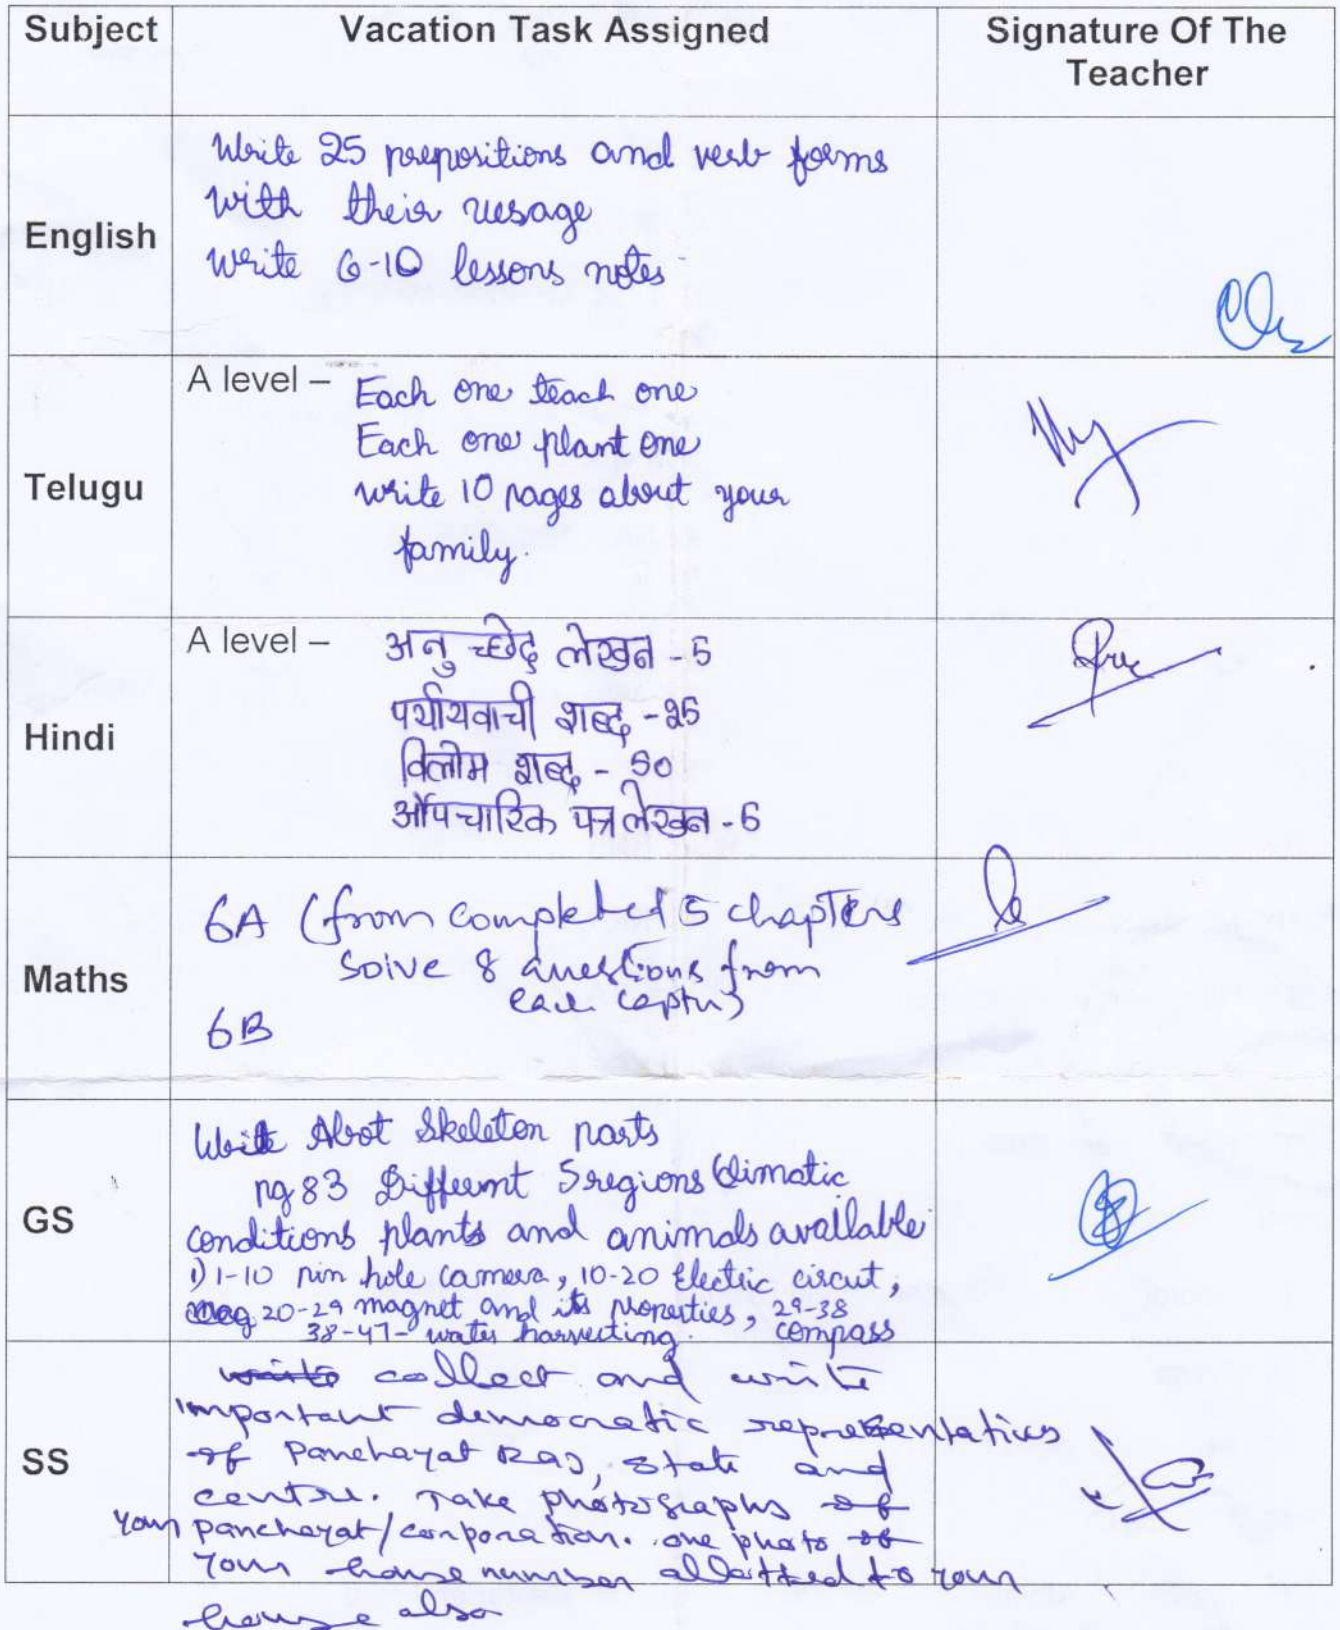 Subject Vacation Task Assigned Signature Of The
Teacher
English
Write 25 prepositions and verb forms
with their uesage
Write 6-10 lessons notes
Telugu
A level – Each one teach one
Each one plant one
write 10 pages about your
family.
Hindi
A level – अनुच्छेद लेखन - 5
पर्यायवाची शब्द - 25
विलोम शब्द - 50
औपचारिक पत्र लेखन - 5
Maths
6A (from completed 5 chapters
Solve 8 questions from
6B
GS
Write Abot Skeleton parts
pg 83 Different 5 regions climatic
conditions plants and animals available
1) 1-10 pin hole camera, 10-20 Electric circut,
20-29 magnet and its properties, 29-38
38-47- water harvesting. compass
SS
write collect and write
important democratic representatives
of Panchayat Raj, state and
centre. Take photographs of
your panchayat/corporation. one photo of
your house number allotted to your
house also